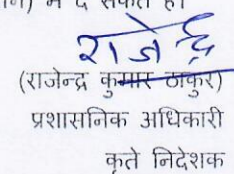 में दे सकते हैं।
राजेन्द्र
(राजेन्द्र कुमार ठाकुर)
प्रशासनिक अधिकारी
कृते निदेशक